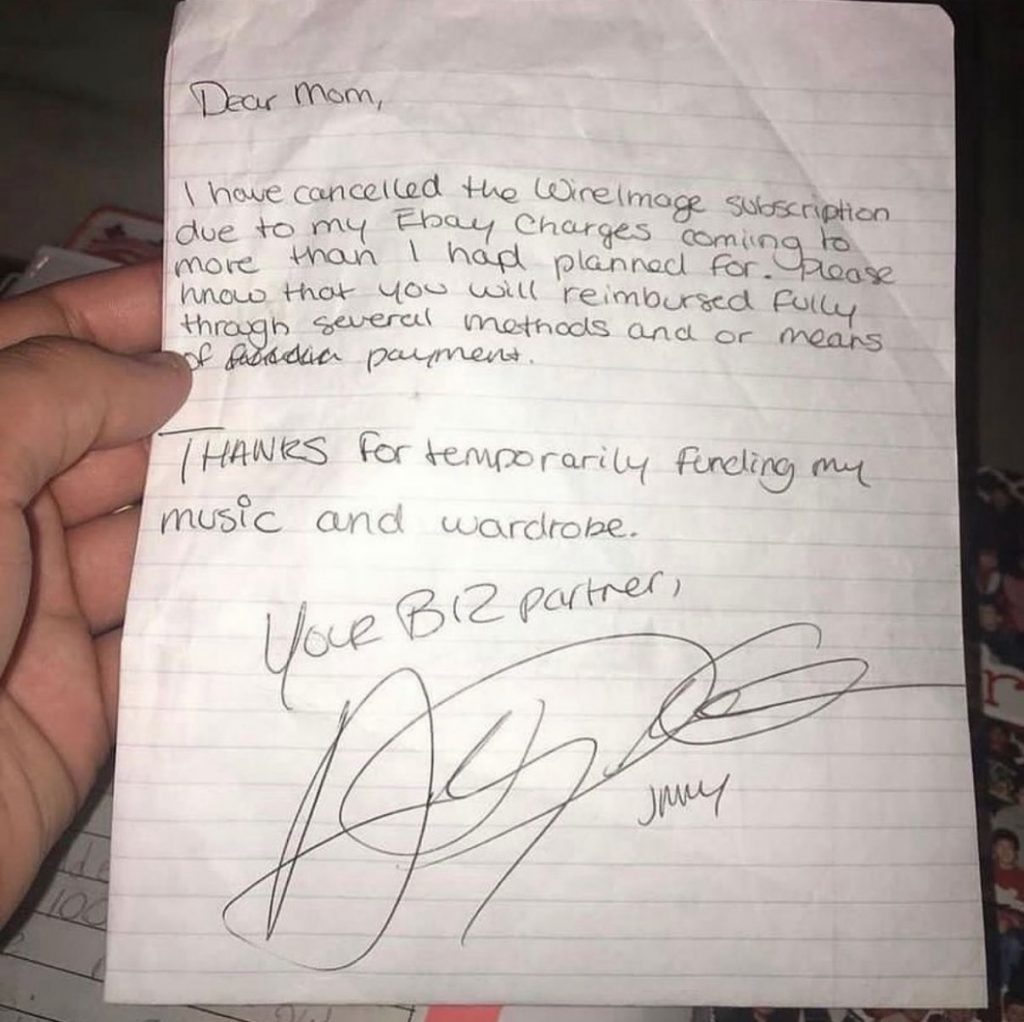 Dear Mom,
I have cancelled the WireImage subscription
due to my Ebay Charges coming to
more than I had planned for. Please
know that you will reimbursed fully
through several methods and or means
of payment.
THANKS for temporarily funding my
music and wardrobe.
Your BIZ partner,
100